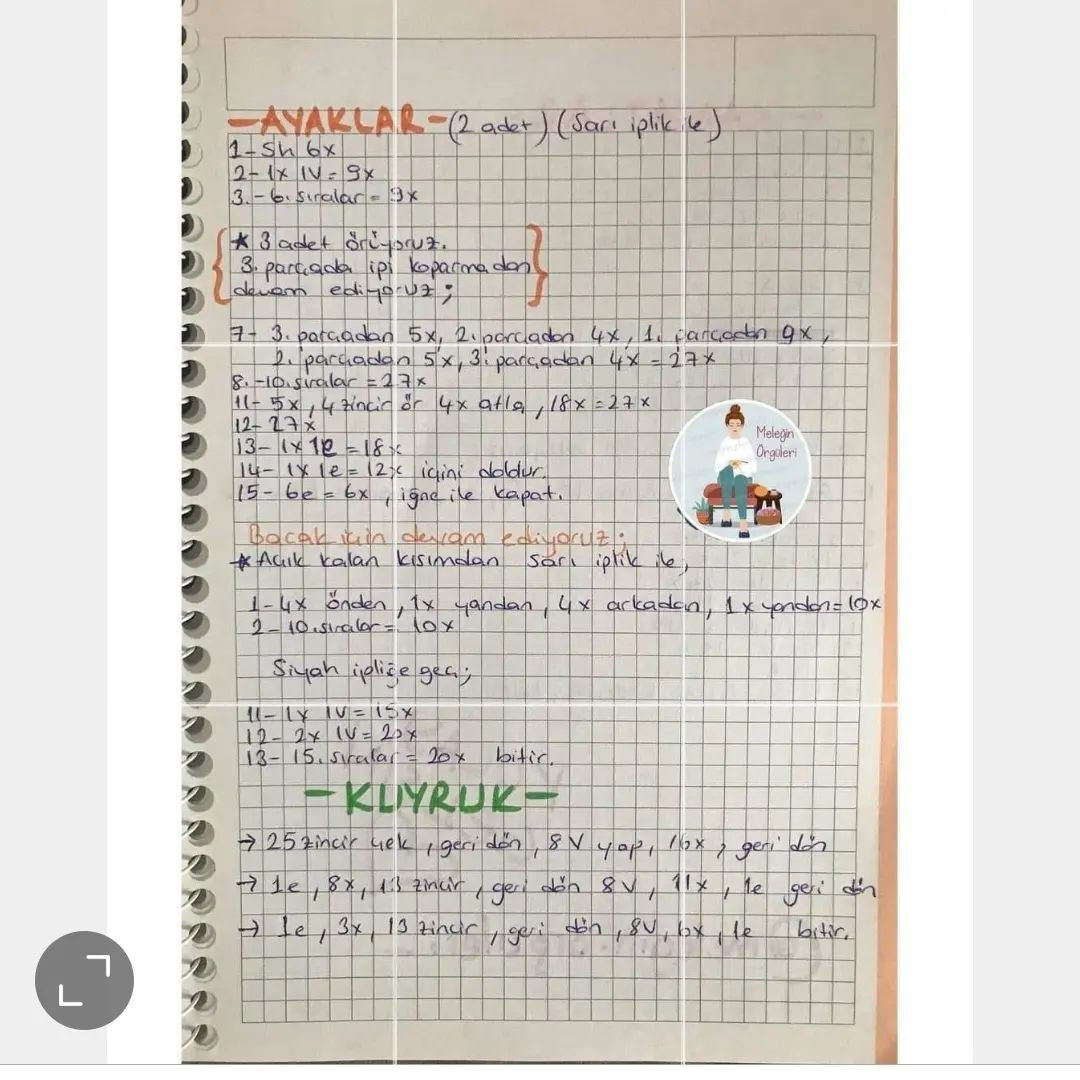 -AYAKLAR-(2 adet) (Sarı iplik ile)
1- Sh 6x
2- 1x 1V = 9x
3.-6. sıralar = 9x
* 3 adet örüyoruz.
3. parçada ipi koparmadan
devam ediyoruz;
7- 3. parçadan 5x, 2. parçadan 4x, 1. parçadan 9x,
2. parçadan 5x, 3. parçadan 4x = 27x
8.-10. sıralar = 27x
11- 5x, 4 zincir ör 4x atla, 18x = 27x
12- 27x
13- 1x 1e = 18x
14- 1x 1e = 12x içini doldur.
15- 6e = 6x, iğne ile kapat.
Meleğin
Örgüleri
Bacak için devam ediyoruz;
* Açık kalan kısımdan sarı iplik ile,
1- 4x önden, 1x yandan, 4x arkadan, 1x yandan = 10x
2- 10. sıralar = 10x
Siyah ipliğe geç;
11- 1x 1V = 15x
12- 2x 1V = 20x
13- 15. sıralar = 20x bitir.
-KUYRUK-
→ 25 zincir çek, geri dön, 8V yap, 16x, geri dön
→ 1e, 8x, 13 zincir, geri dön 8V, 11x, 1e geri dön
→ 1e, 3x, 13 zincir, geri dön, 8V, 6x, 1e bitir.